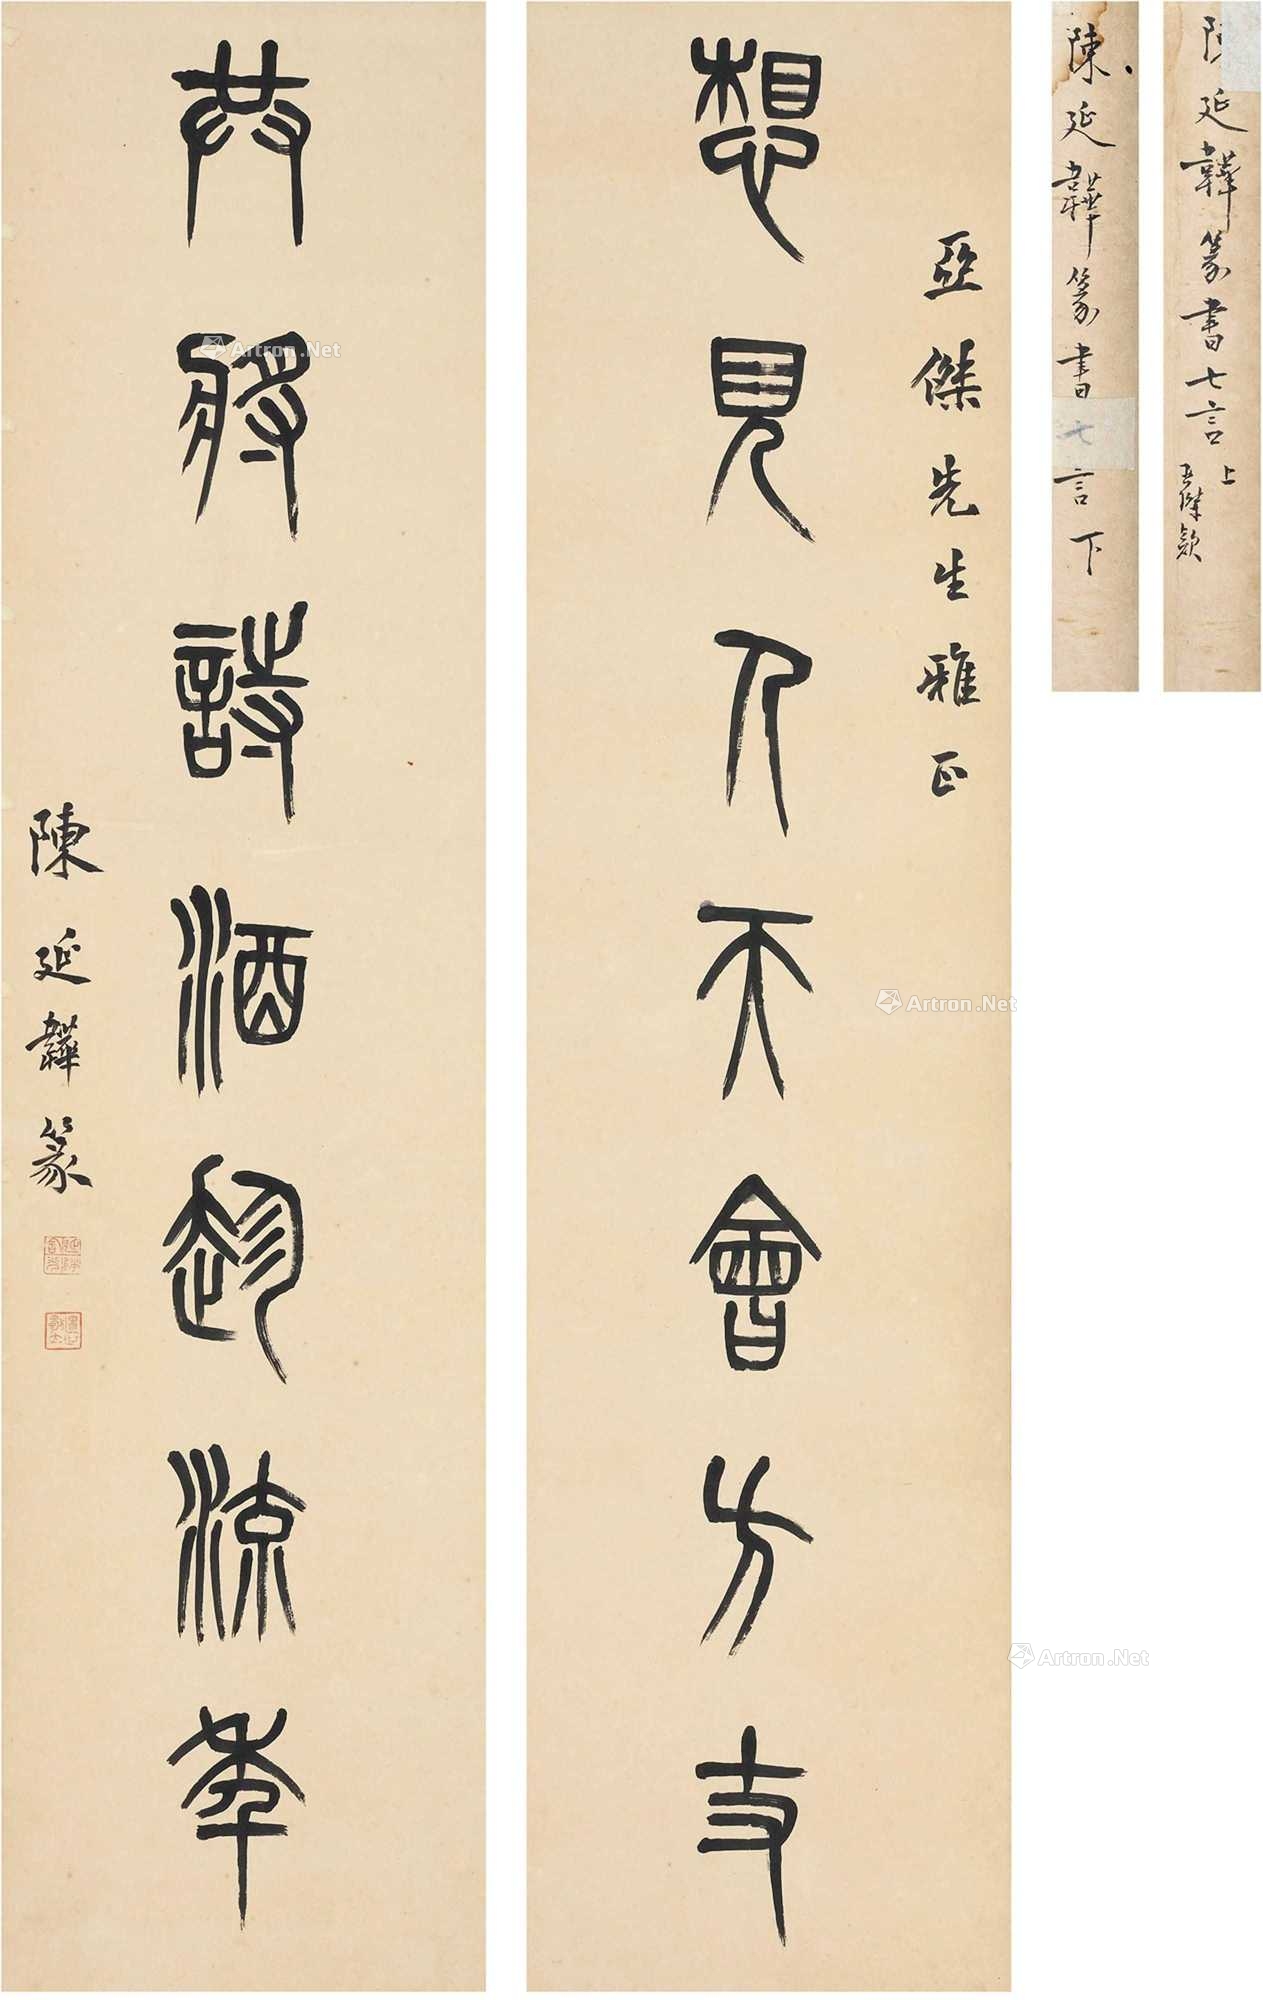 陳延韡篆書七言 上
亞傑款
陳延韡篆書七言下
亞傑先生雅正
想見人天會方丈
共將詩酒趁流年
陳延韡篆
Artron.Net
Artron.Net
Artron.Net